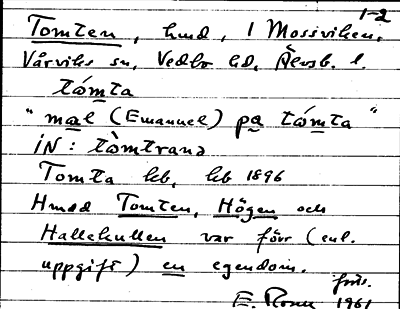 1-2
Tomten, hmd, i Mossviken,
Vårviks sn, Vedbo hd, Älvsb. l.
tómta
"mal (Emanuel) pa tómta"
iN: tòmtrana
Tomta hb, hb 1896
Hmdd Tomten, Högen och
Hallekullen var förr (enl.
uppgift) en egendom.
1961